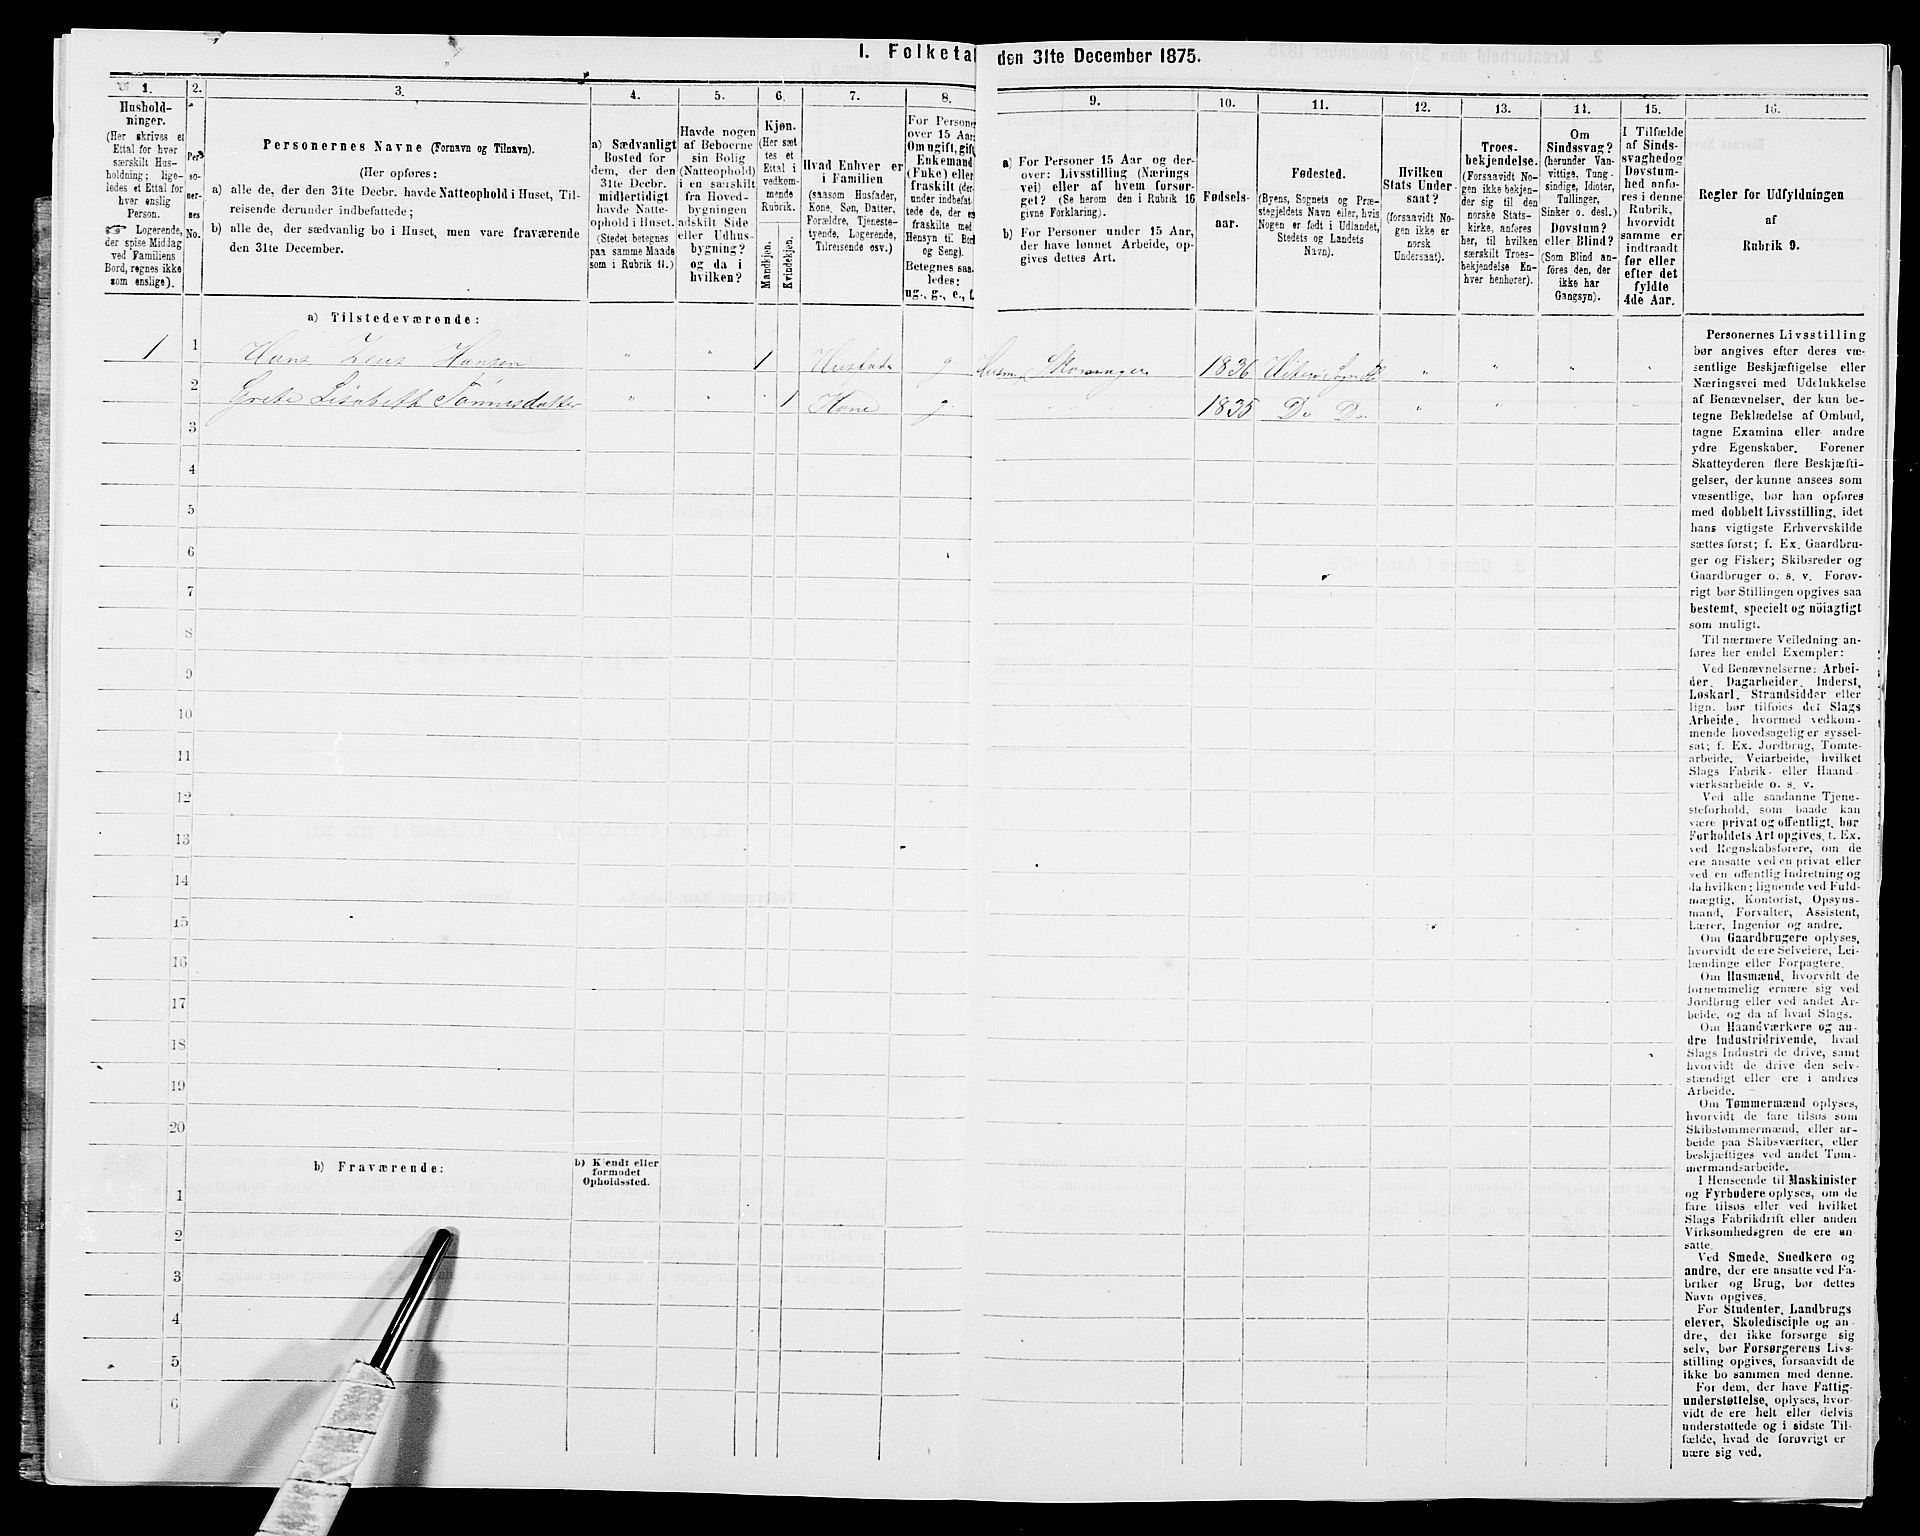 I. Folketal den 31te December 1875.
1.
2.
3.
4.
5.
6.
7.
8.
9.
10.
11.
12.
13.
14.
15.
16.
Hushold-
ninger.
(Her skrives et
Ettal for hver
særskilt Hus-
holdning; lige-
ledes et Ettal for
hver enslig
Person.
☞ Logerende,
der spise Middag
ved Familiens
Bord, regnes ikke
som enslige).
Per-
so-
ner-
nes
No.
Personernes Navne (Fornavn og Tilnavn).
(Her opføres:
a) alle de, der den 31te Decbr. havde Natteophold i Huset, Til-
reisende derunder indbefattede;
b) alle de, der sædvanlig bo i Huset, men vare fraværende
den 31te December.
a) Sædvanligt
Bosted for
dem, der den
31te Decbr.
midlertidigt
havde Natte-
ophold i Huset.
(Stedet betegnes
paa samme Maade
som i Rubrik 11.)
Havde nogen
af Beboerne
sin Bolig
(Natteophold)
i en særskilt
fra Hoved-
bygningen
adskilt Side
eller Udhus-
bygning?
og da i
hvilken?
Kjøn.
(Her sæt-
tes et
Ettal i
vedkom-
mende
Rubrik.
Mandkjøn.
Kvindekjøn.
Hvad Enhver er
i Familien
(saasom Husfader,
Kone, Søn, Datter,
Forældre, Tjeneste-
tyende, Logerende,
Tilreisende osv.)
For Personer
over 15 Aar:
Om ugift, gift,
Enkemand
(Enke) eller
fraskilt (der-
under indbefat-
tede de, der ere
fraskilte med
Hensyn til Bord
og Seng).
Betegnes saa-
ledes:
ug., g., e., f.
a) For Personer 15 Aar og der-
over: Livsstilling (Nærings
vei) eller af hvem forsør-
get? (Se herom den i Rubrik 16
givne Forklaring).
b) For Personer under 15 Aar,
der have lønnet Arbeide, op-
gives dettes Art.
Fødsels-
aar.
Fødested.
(Byens, Sognets og Præ-
stegjeldets Navn eller, hvis
Nogen er født i Udlandet,
Stedets og Landets
Navn).
Hvilken
Stats Under-
saat?
(forsaavidt No-
gen ikke er
norsk
Undersaat).
Troes-
bekjendelse.
(Forsaavidt No-
gen ikke bekjen-
der sig til den
norske Stats-
kirke, anføres
her, til hvilken
særskilt Troes-
bekjendelse En-
hver henhører).
Om
Sindssvag?
(herunder Van-
vittige, Tung-
sindige, Idioter,
Tullinger,
Sinker o. desl.)
Døvstum?
eller Blind?
(Som Blind an-
føres den, der
ikke har
Gangsyn).
I Tilfælde
af Sinds-
svaghed og
Døvstum-
hed anfø-
res i denne
Rubrik,
hvorvidt
samme er
indtraadt
før eller
efter det
fyldte
4de Aar.
Regler for Udfyldningen
af
Rubrik 9.
a) Tilstedeværende:
1 1 Hans Hansen " " 1 Husfader g 1836 " " " "
2 Grete Lisabeth Tønnesdatter " " 1 Kone g 1835 Do Do " "
3
4
5
6
7
8
9
10
11
12
13
14
15
16
17
18
19
20
b) Fraværende:
b) Kjendt eller
formodet
Opholdssted.
1
2
3
4
5
6
Personernes Livsstilling
bør angives efter deres væ-
sentlige Beskjæftigelse eller
Næringsvei med Udelukkelse
af Benævnelser, der kun be-
tegne Beklædelse af Ombud,
tagne Examina eller andre
ydre Egenskaber. Forener
Skatteyderen flere Beskjæfti-
gelser, der kunne ansees som
væsentlige, bør han opføres
med dobbelt Livsstilling, idet
hans vigtigste Erhvervskilde
sættes først; f. Ex. Gaardbru-
ger og Fisker; Skibsreder og
Gaardbruger o. s. v. Forøv-
rigt bør Stillingen opgives saa
bestemt, specielt og nöiagtigt
som muligt.
Til nærmere Veiledning an-
føres her endel Exempler:
Ved Benævnelserne: Arbei-
der, Dagarbeider, Inderst,
Løskarl, Strandsidder eller
lign. bør tilføies det Slags
Arbeide, hvormed vedkom-
mende hovedsagelig er syssel-
sat; f. Ex. Jordbrug, Tomte-
arbeide, Veiarbeide, hvilket
Slags Fabrik- eller Haand-
værksarbeide o. s. v.
Ved alle saadanne Tjene-
steforhold, som baade kan
være privat og offentligt, bør
Forholdets Art opgives, t. Ex.
ved Regnskabsførere, om de
ere ansatte ved en privat eller
ved en offentlig Indretning og
da hvilken; lignende ved Fuld-
mægtig, Kontorist, Opsyns-
mand, Forvalter, Assistent,
Lærer, Ingeniør og andre.
Om Gaardbrugere oplyses,
hvorvidt de ere Selveiere, Lei-
lændinge eller Forpagtere.
Om Husmænd, hvorvidt de
fornemmelig ernære sig ved
Jordbrug eller ved andet Ar-
beide, og da af hvad Slags.
Om Haandværkere og an-
dre Industridrivende, hvad
Slags Industri de drive, samt
hvorvidt de drive den selv-
stændigt eller ere i andres
Arbeide.
Om Tømmermænd oplyses,
hvorvidt de fare tilsøs som
Skibstømmermænd, eller ar-
beide paa Skibsværfter, eller
beskjæftiges ved andet Tøm-
mermandsarbeide.
I Henseende til Maskinister
og Fyrbødere oplyses, om de
fare tilsøs eller ved hvilket
Slags Fabrikdrift eller anden
Virksomhedsgren de ere an-
satte.
Ved Smede, Snedkere og
andre, der ere ansatte ved Fa-
briker og Brug, bør dettes
Navn opgives.
For Studenter, Landbrugs-
elever, Skoledisciple og an-
dre, der ikke forsørge sig
selv, bør Forsørgerens Livs-
stilling opgives, forsaavidt de
ikke bo sammen med denne.
For dem, der have Fattig-
understøttelse, oplyses, hvor-
vidt de ere helt eller delvis
understøttede og i sidste Til-
fælde, hvad de forøvrigt er-
nære sig ved.